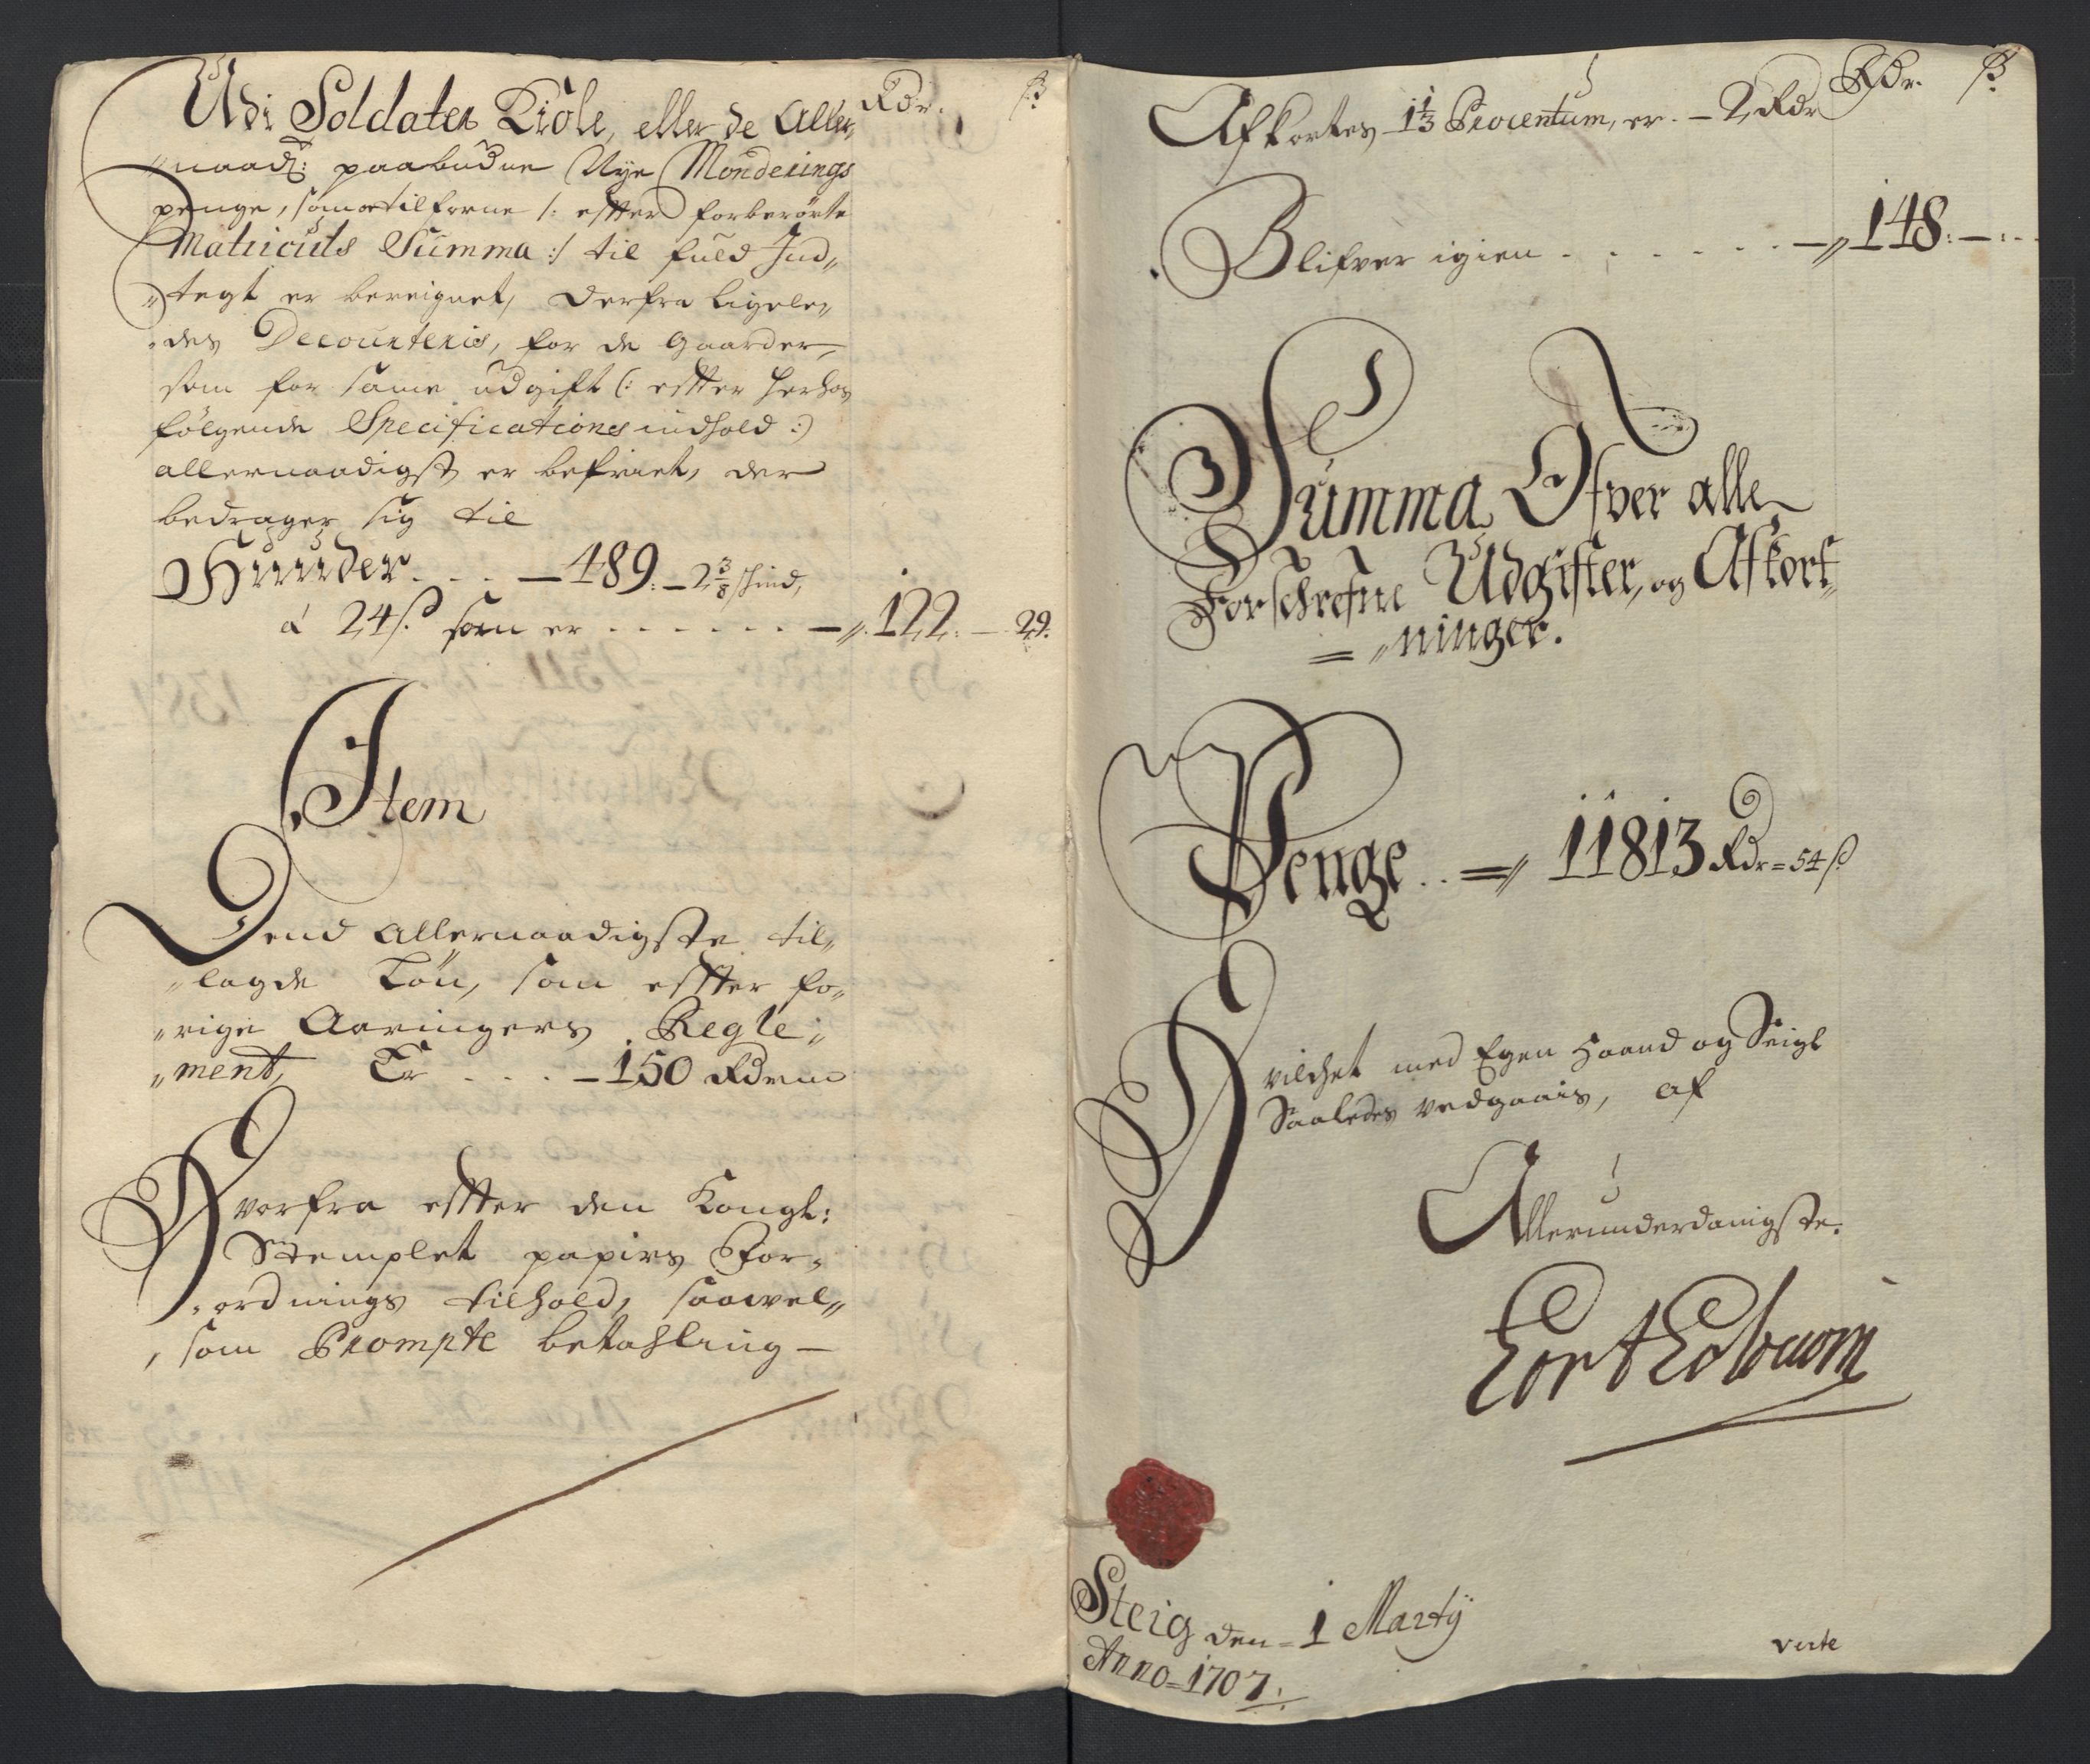 Rdr. ß
Udi Soldater Kiole, eller de Aller„
„naad: paabudne Nye Monderings
penge, som er tilforne /: effter forberørte
Matriculs Summa :/ til fuld Ind„
„tegt er bereignet, derfra ligele„
„des Decourteris, for de gaarder,
som for samme udgift (: effter herhos
følgende Specifications indhold :)
allernaadigst er befriet, der
bedrager sig til
Huuder . . . — 489: — 2 3/8 schind,
á 24 ß som er . . . . . . —„ 122: — 29.
Item
Dend Allernaadigste til„
„lagde Løn, som effter fo„
„rige Aaringers Regle„
„ment, Er . . . — 150 Rdr
Hvorfra effter den Kongl:
Stemplet papirs For„
„ordnings tilhold, saavel„
„som Prompte betahling —
Rdr. ß
Afkortes 1 1/3 Procentum, er. — 2 Rdr
Blifver igien . . . . . . —„ 148: — : -
Summa Ofver alle
Forschrefne Udgifter, og Afkort„
= „ninger.
Penge . . =„ 11813 Rdr = 54 ß
Hvilchet med Egen Haand og Seigl
Saaledes vedgaais, af
Allerunderdanigste.
Steig den = 1 Martÿ
Anno = 1707.
verte